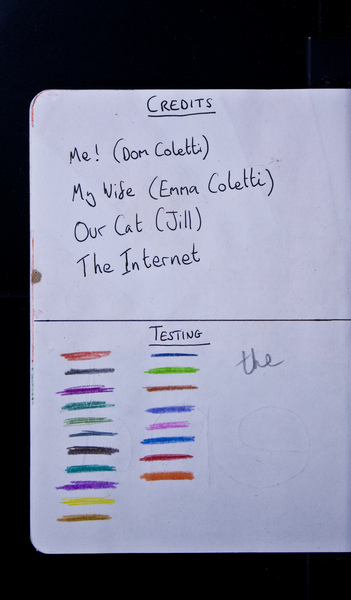 CREDITS
Me! (Dom Coletti)
My Wife (Emma Coletti)
Our Cat (Jill)
The Internet
TESTING
the